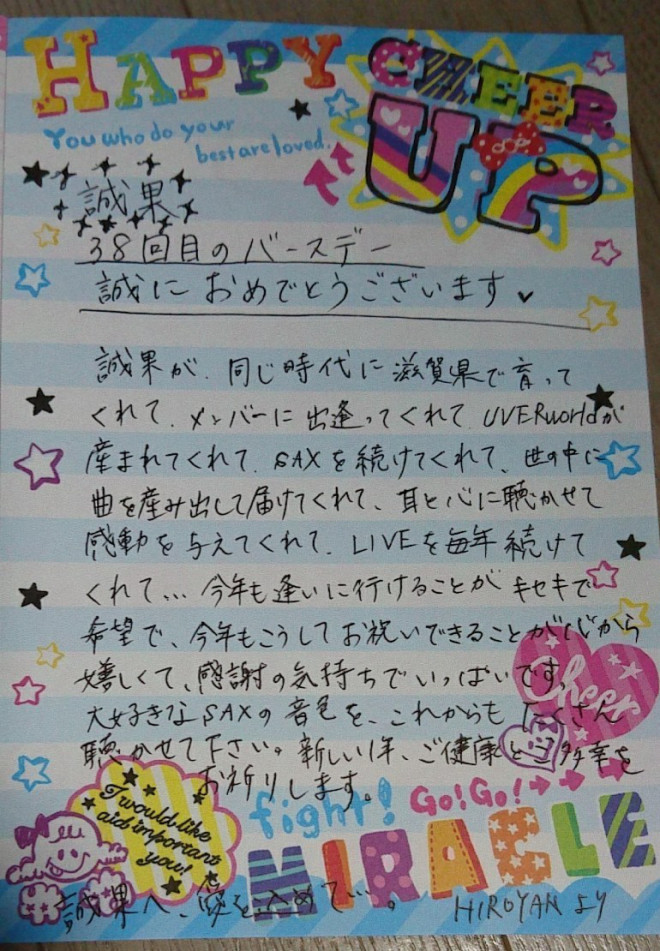 HAPPY CHEER UP
You who do your
best are loved.
誠果
38回目のバースデー
誠におめでとうございます♥
誠果が、同じ時代に滋賀県で育って
くれて、メンバーに出逢ってくれて、UVERworldが
産まれてくれて、SAXを続けてくれて、世の中に
曲を産み出して届けてくれて、耳と心に聴かせて
感動を与えてくれて、LIVEを毎年続けて
くれて…今年も逢いに行けることがキセキで
希望で、今年もこうしてお祝いできることが心から
嬉しくて、感謝の気持ちでいっぱいです。
大好きなSAXの音色を、これからもたくさん
聴かせて下さい。新しい1年、ご健康とご多幸を
お祈りします。
Cheer
I would like
aid important
you!
fight! Go!Go!
MIRACLE
誠果へ、愛を込めて…。
HIROYANより